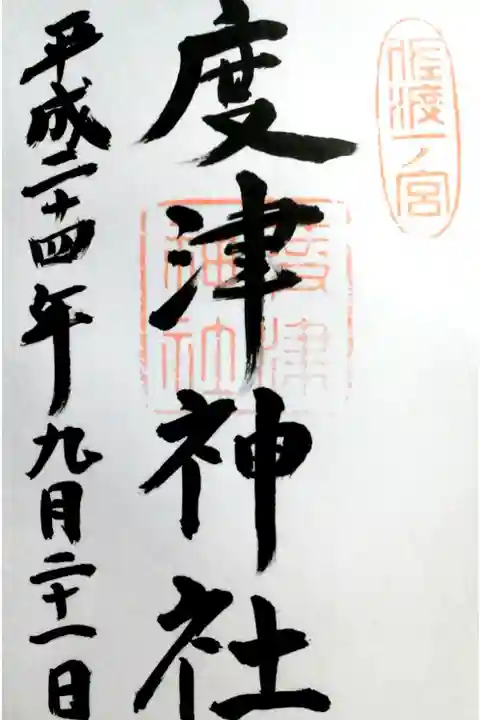 佐渡一ノ宮
度津神社
度津
神社
平成二十四年九月二十一日